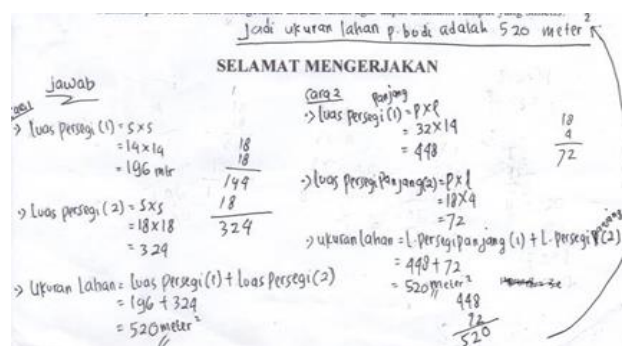 Jadi ukuran lahan p. budi adalah 520 meter²
SELAMAT MENGERJAKAN
jawab
cara 1
-> luas persegi (1) = s x s
= 14 x 14
= 196 mtr
18
18
144
18
324
-> luas persegi (2) = s x s
= 18 x 18
= 324
-> Ukuran lahan = luas persegi (1) + luas persegi (2)
= 196 + 324
= 520 meter²
cara 2
panjang
-> luas persegi (1) = p x l
= 32 x 14
= 448
18
4
72
-> luas persegi panjang (2) = p x l
= 18 x 4
= 72
-> ukuran lahan = L. persegi panjang (1) + L. persegi panjang (2)
= 448 + 72
= 520 meter²
448
72
520